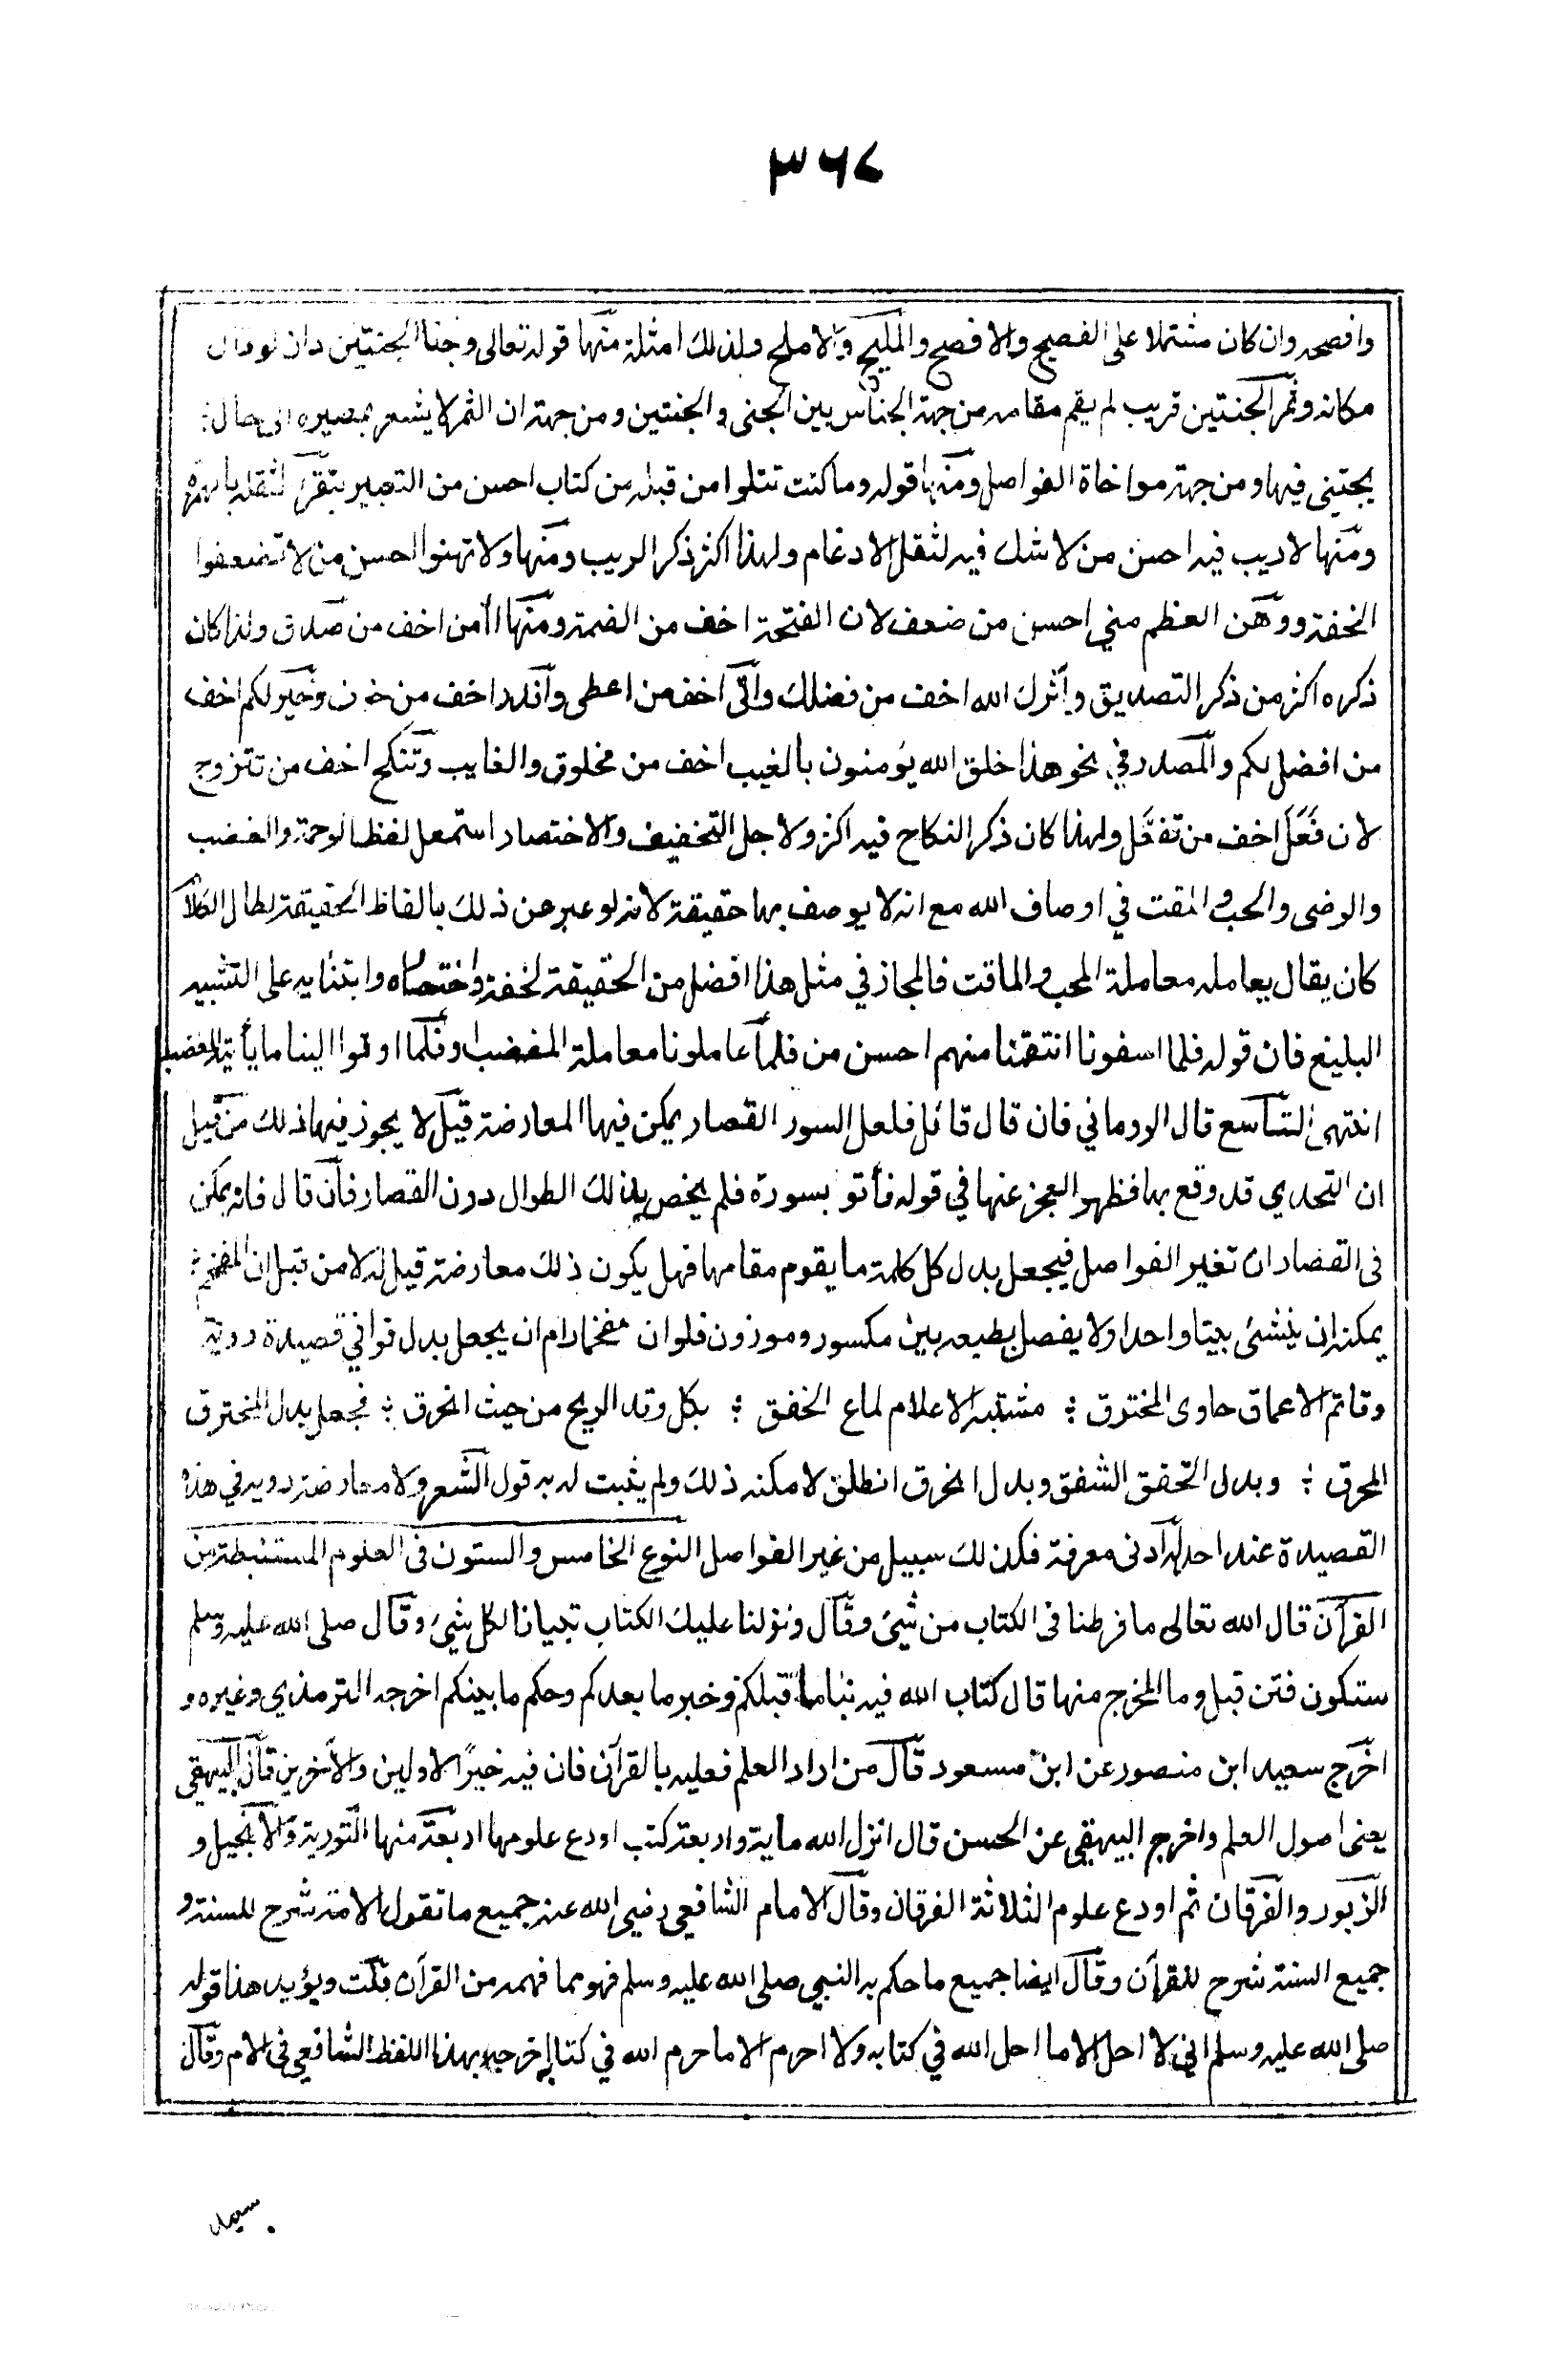 ٣٦٧
وافصحه وان كان مشتملا على الفصيح والافصح والمليح والاملح ولذلك امثلة منها قوله تعالى وجنا الجنتين دان لو قال
مكانه وثمر الجنتين قريب لم يقم مقامه من جهة الجناس بين الجنى والجنتين ومن جهة ان الثمر لا يشعر بمصيره الى حال
يجتنى فيها ومن جهة مواخاة الفواصل ومنها قوله وما كنت تتلوا من قبله من كتاب احسن من التعبير بتقرء لثقله بالهمزة
ومنها لا ريب فيه احسن من لا شك فيه لثقل الادغام ولهذا اكثر ذكر الريب ومنها ولا تهنوا احسن من لا تضعفوا
الخفته ووهن العظم مني احسن من ضعف لان الفتحة اخف من الضمة ومنها اآمن اخف من صدق ولذا كان
ذكره اكثر من ذكر التصديق وآثرك الله اخف من فضلك وآتى اخف من اعطى وآنذر اخف من خوف وخير لكم اخف
من افضل لكم والمصدر في نحو هذا خلق الله يؤمنون بالغيب اخف من مخلوق والغايب وتنكح اخف من تتزوج
لان فَعَلَ اخف من تفعَّل ولهذا كان ذكر النكاح فيه اكثر ولاجل التخفيف والاختصار استعمل لفظ الرحمة والغضب
والرضى والحب والمقت في اوصاف الله مع انه لا يوصف بها حقيقة لانه لو عبر عن ذلك بالفاظ الحقيقة لطال الكلام
كان يقال يعامله معاملة المحب والماقت فالمجاز في مثل هذا افضل من الحقيقة لخفته واختصاره وابتنايه على التشبيه
البليغ فان قوله فلما اسفونا انتقمنا منهم احسن من فلما عاملونا معاملة المغضب او فلما اوتوا الينا ما يأتيه المغضب
انتهى التاسع قال الرماني فان قال قائل فلعل السور القصار يمكن فيها المعارضة قيل لا يجوز فيها ذلك من قبل
ان التحدي قد وقع بها فظهر العجز عنها في قوله فأتو بسورة فلم يخص بذلك الطوال دون القصار فان قال فانه يمكن
فى القصار ان تغير الفواصل فيجعل بدل كل كلمة ما يقوم مقامها فهل يكون ذلك معارضة قيل له لا من قبل ان المفخم
يمكنه ان ينشئ بيتا واحدا ولا يفصل بطبعه بين مكسور وموزون فلو ان مفخما رام ان يجعل بدل قوافي قصيدة روبة
وقاتم الاعماق حاوى المخترق ؛ مشتبه الاعلام لماع الخفق ؛ بكل وفد الريح من حيث انخرق ؛ فجعل بدل المخترق
المحرق ؛ وبدل الخفق الشفق وبدل انخرق انطلق لامكنه ذلك ولم يثبت له به قول الشعر ولا معارضة روبه في هذه
القصيدة عند احد له ادنى معرفة فكذلك سبيل من غير الفواصل النوع الخامس والستون فى العلوم المستنبطة من
القرآن قال الله تعالى ما فرطنا فى الكتاب من شئ وقال ونزلنا عليك الكتاب تبيانا لكل شئ وقال صلى الله عليه وسلم
ستكون فتن قيل وما المخرج منها قال كتاب الله فيه نبأ ما قبلكم وخبر ما بعدكم وحكم ما بينكم اخرجه الترمذي وغيره و
اخرج سعيد ابن منصور عن ابن مسعود قال من اراد العلم فعليه بالقرآن فان فيه خبر الاولين والآخرين قال البيهقى
يعنى اصول العلم واخرج البيهقى عن الحسن قال انزل الله ماية واربعة كتب اودع علومها اربعة منها التورية والانجيل و
الزبور والفرقان ثم اودع علوم الثلاثة الفرقان وقال الامام الشافعي رضى الله عنه جميع ما تقول الامة شرح للسنة و
جميع السنة شرح للقرآن وقال ايضا جميع ما حكم به النبي صلى الله عليه وسلم فهو مما فهمه من القرآن قلت ويؤيد هذا قوله
صلى الله عليه وسلم انى لا احل الا ما احل الله في كتابه ولا احرم الا ما حرم الله في كتابه اخرجه بهذا اللفظ الشافعي فى الام وقال